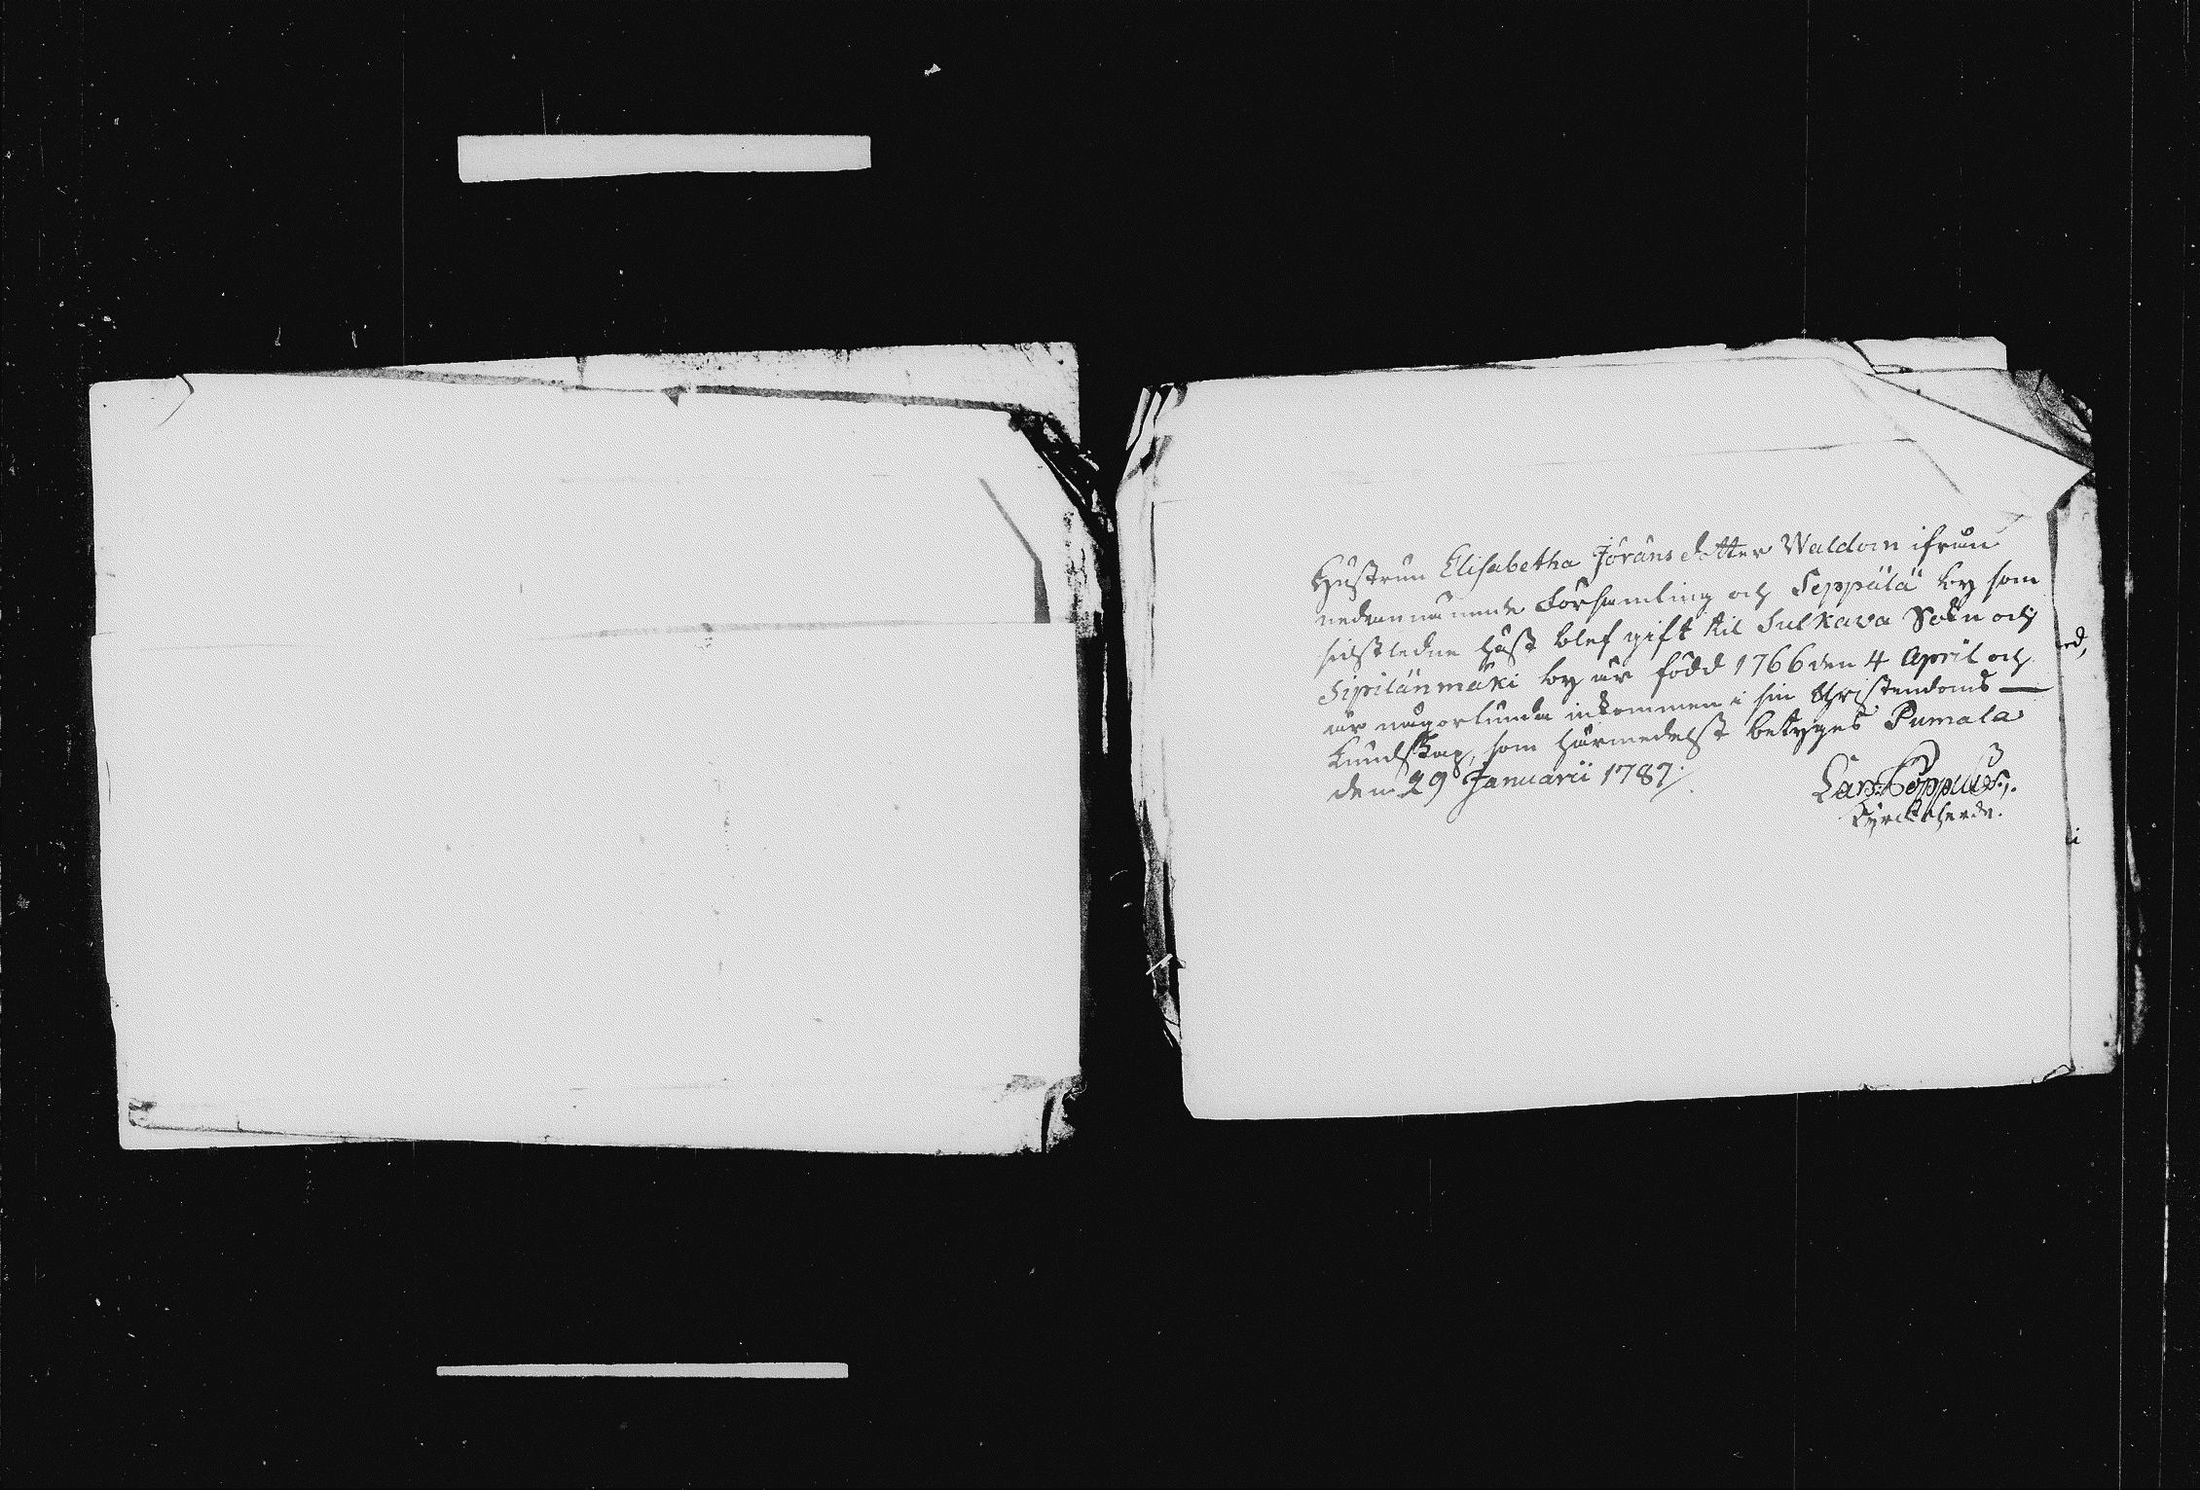 Hustrun Elisabetha Jöransdotter Waldoin ifrån
nedannämnde Församling och Seppälä by som
sidstledne höst blef gift til Sulkava Sokn och
Sipilänmäki by är född 1766 den 4 April och
är någorlunda inkommen i sin Christendoms —
Kundskap, som härmedelst betyges Pumala
den 29 Januarii 1787.
Lars Poppius.
Kyrckoherde.
ed,
i